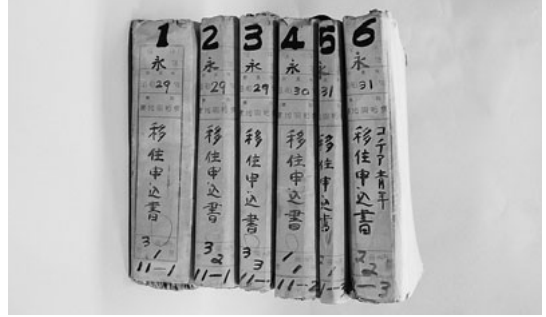 1
永
29
移住申込書
3
1
11-1
2
永
29
移住申込書
3
2
11-1
3
永
29
移住申込書
3
3
11-
4
永
30
移住申込書
1
1
11-
5
永
31
移住申込書
2
1
6
永
31
コチア青年
移住申込書
2
2
-3